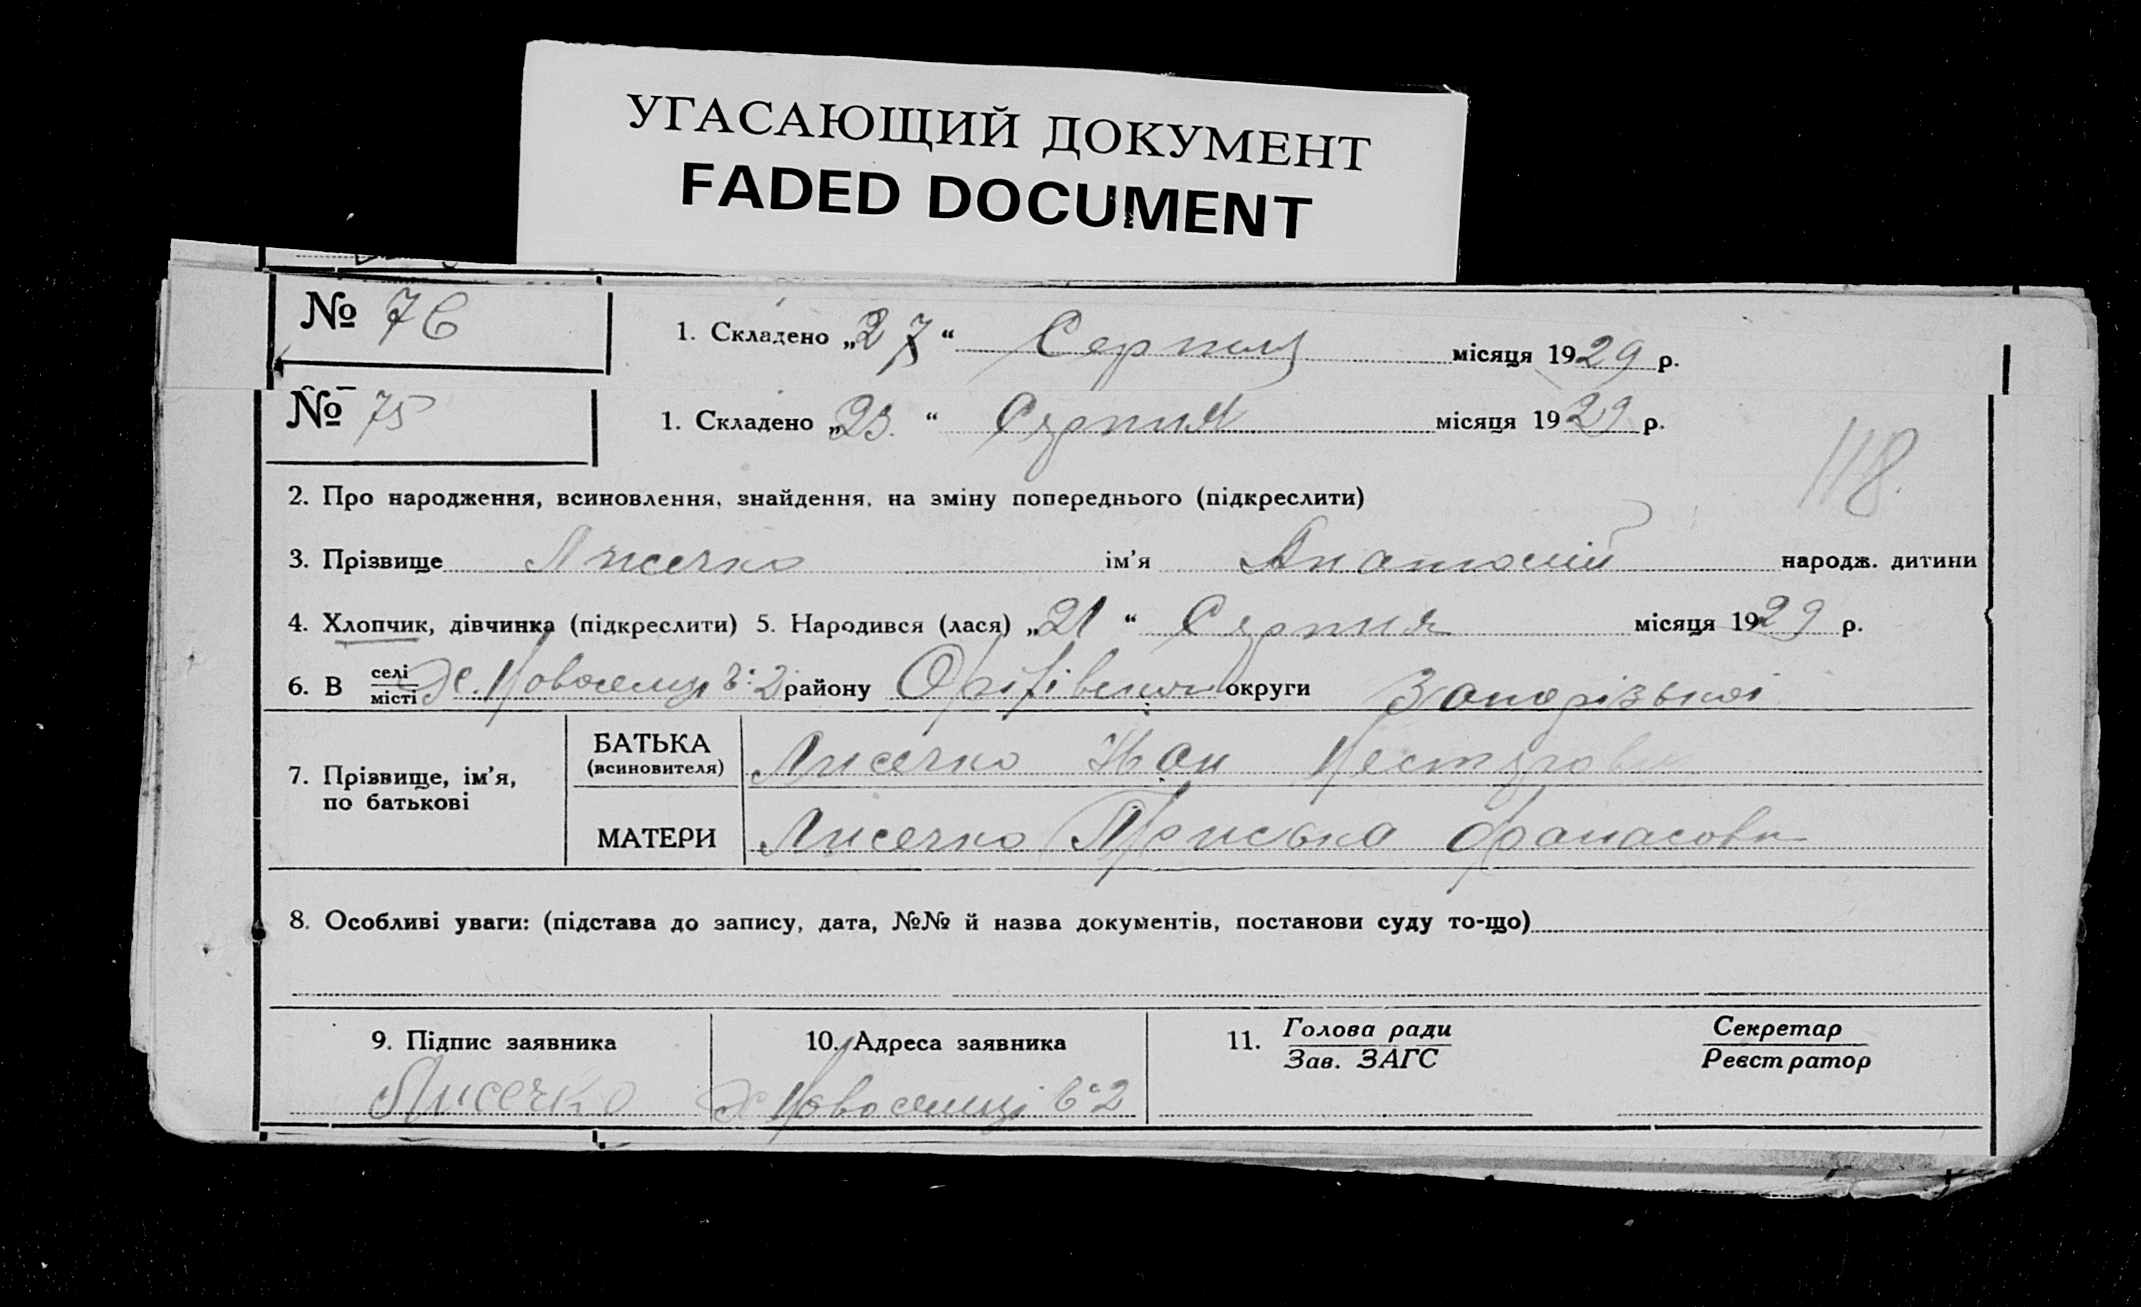 УГАСАЮЩИЙ ДОКУМЕНТ
FADED DOCUMENT
№ 76
1. Складено „27“ Серпня місяця 1929 р.
№ 75
1. Складено „23.“ Серпня місяця 1929 р.
118.
2. Про народження, всиновлення, знайдення, на зміну попереднього (підкреслити)
3. Прізвище Лисечко ім'я Анатолій народж. дитини
4. Хлопчик, дівчинка (підкреслити) 5. Народився (лася) „21“ Серпня місяця 1929 р.
6. В селі/місті х. Новоселиця № 2 району Оріхівськ округи Запорізької
7. Прізвище, ім'я, по батькові
БАТЬКА (всиновителя) Лисечко Іван Нестеров
МАТЕРИ Лисечко Приська Афанасовн
8. Особливі уваги: (підстава до запису, дата, №№ й назва документів, постанови суду то-що)
9. Підпис заявника
10. Адреса заявника
11. Голова ради
Зав. ЗАГС
Секретар
Реєстратор
Лисечко
х Новоселиці 2